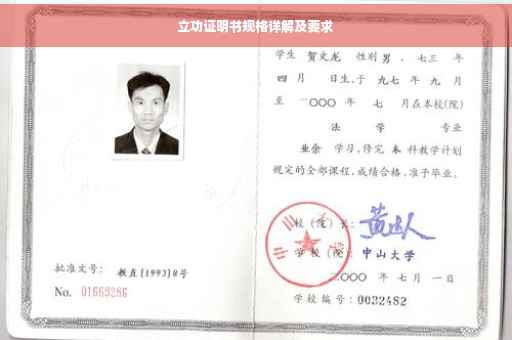 立功证明书规格详解及要求
学生 贺文龙 性别 男 、七三 年
四 月 日生,于 九七 年 九 月
至 二〇〇〇 年 七 月在本校(院)
法 学 专业
业余 学习,修完 本 科教学计划
规定的全部课程,成绩合格,准予毕业。
校(院)长:
学校(院): 中山大学
二〇〇〇 年 七月 一日
学校编号:0032482
批准文号: 教直[1993]8号
No. 01669286